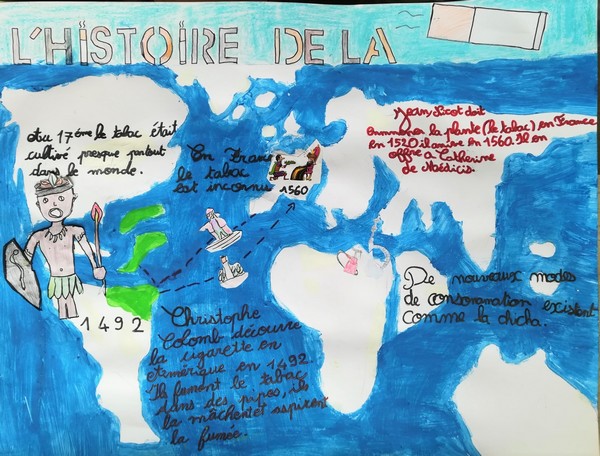 L'HISTOIRE DE LA
Au 17ème le tabac était
cultivé presque partout
dans le monde.
En France
le tabac
est inconnu
1560
Jean Nicot doit
emmener la plante (le tabac) en France
en 1520 il arrive en 1560. Il en
offre à Catherine
de Médicis.
1492
Christophe
Colomb découvre
la cigarette en
Amérique en 1492.
Ils fument le tabac
dans des pipes, ils
la mâchent et aspirent
la fumée.
De nouveaux modes
de consommation existent
comme la chicha.